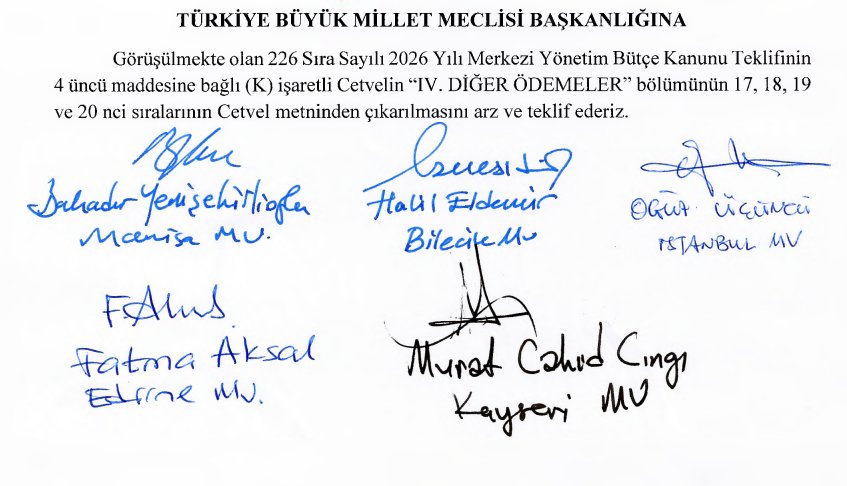 TÜRKİYE BÜYÜK MİLLET MECLİSİ BAŞKANLIĞINA
Görüşülmekte olan 226 Sıra Sayılı 2026 Yılı Merkezi Yönetim Bütçe Kanunu Teklifinin
4 üncü maddesine bağlı (K) işaretli Cetvelin “IV. DİĞER ÖDEMELER” bölümünün 17, 18, 19
ve 20 nci sıralarının Cetvel metninden çıkarılmasını arz ve teklif ederiz.
Bahadır Yenişehirlioğlu
Manisa MV.
Halil Eldemir
Bilecik MV
OĞUZ ÜÇÜNCÜ
İSTANBUL MV
Fatma Aksal
Edirne MV.
Murat Cahid Cıngı
Kayseri MV